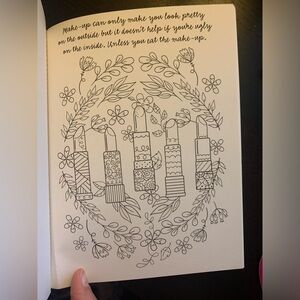 Make-up can only make you look pretty
on the outside but it doesn't help if you're ugly
on the inside. Unless you eat the make-up.